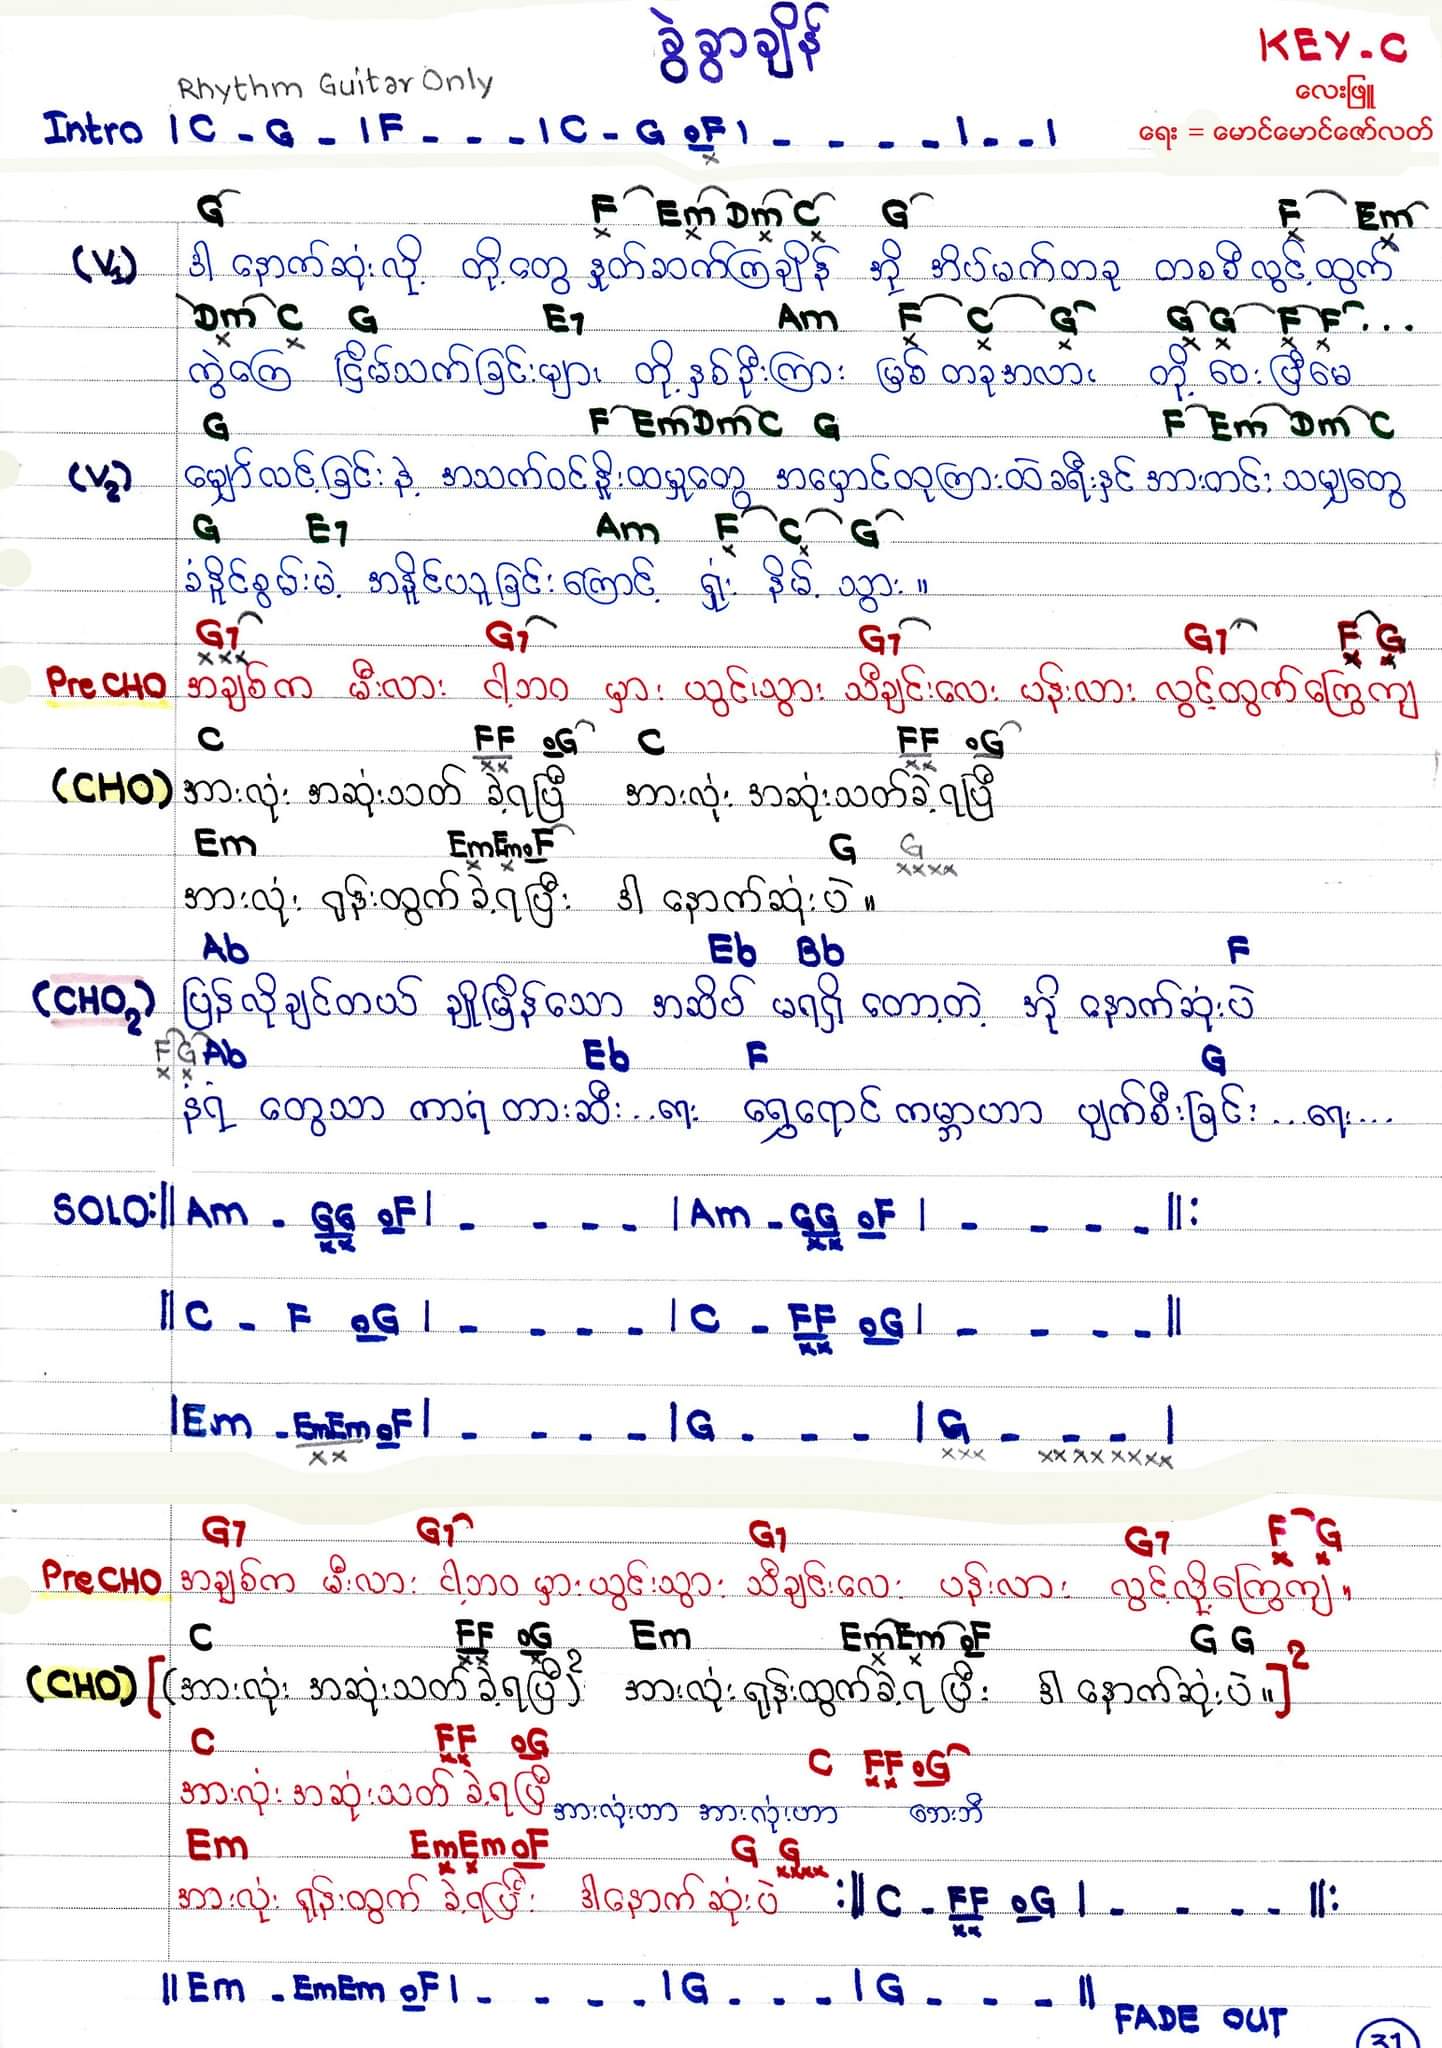 ခွဲခွာချိန်
KEY-C
Rhythm Guitar Only
လေးဖြူ
Intro | C - G - | F - - - | C - G oF | - - - - | - - |
x
ရေး = မောင်မောင်ဇော်လတ်
G F Em Dm C G F Em
x x x x x x
(V1) ဒါ နောက်ဆုံးလို့ တို့တွေ နှုတ်ဆက်ကြချိန် အို အိပ်မက်တခု တစစီလွင့်ထွက်
Dm C G E7 Am F C G G G F F...
x x x x x x x x x
ကွဲကြေ ငြိမ်သက်ခြင်းများ တို့နှစ်ဦးကြား မြစ်တခုအလား တို့ဝေးပြီမေ
G F Em Dm C G F Em Dm C
(V2) မျှော်လင့်ခြင်းနဲ့ အသက်ဝင်နှိုးထမှုတွေ အမှောင်ထုကြားထဲခရီးနှင် အားတင်းသမျှတွေ
G E7 Am F C G
x x
ခံနိုင်စွမ်းမဲ့ အနိုင်ပသူခြင်းကြောင့် ရှုံး နိမ့် သွား ။
G7 G7 G7 G7 F G
xxx x x
Pre CHO အချစ်က မီးလား ငါ့ဘဝ မှား ယွင်းသွား သီချင်းလေး ပန်းလား လွင့်ထွက်ကြွေကျ
C FF oG C FF oG
xx xx
(CHO) အားလုံး အဆုံးသတ် ခဲ့ရပြီ အားလုံး အဆုံးသတ်ခဲ့ရပြီ
Em EmEmoF G G
x x xxxx
အားလုံး ရုန်းထွက်ခဲ့ရပြီး ဒါ နောက်ဆုံးပဲ ။
Ab Eb Bb F
(CHO2) ပြန်လိုချင်တယ် ချိုမြိန်သော အဆိပ် မရရှိ တော့တဲ့ အို နောက်ဆုံးပဲ
F G Ab Eb F G
x x
နံရံ တွေသာ ကာရံတားဆီး...ရေး ရွှေရောင်ကမ္ဘာဟာ ပျက်စီးခြင်း ...ရေး...
SOLO:|| Am - GG oF | - - - - | Am - GG oF | - - - - ||:
xx xx
|| C - F oG | - - - - | C - FF oG | - - - - ||
xx
| Em - EmEm oF | - - - - | G - - - | G - - - |
xx xxx xx xx xxxx
G7 G7 G7 G7 F G
x x
Pre CHO အချစ်က မီးလား ငါ့ဘဝ မှားယွင်းသွား သီချင်းလေး ပန်းလား လွင့်လို့ကြွေကျ။
C FF oG Em EmEm oF G G
xx x x x
(CHO) [(အားလုံး အဆုံးသတ်ခဲ့ရပြီ)2 အားလုံးရုန်းထွက်ခဲ့ရပြီး ဒါ နောက်ဆုံးပဲ။]2
C FF oG C FF oG
xx xx
အားလုံး အဆုံးသတ် ခဲ့ရပြီ အားလုံးဟာ အားလုံးဟာ ဘေးဘီ
Em EmEm oF G G
x x xxxx
အားလုံး ရုန်းထွက် ခဲ့ရပြီး ဒါနောက်ဆုံးပဲ :|| C - FF oG | - - - - ||:
xx
|| Em - EmEm oF | - - - - | G - - - | G - - - ||
FADE OUT
31